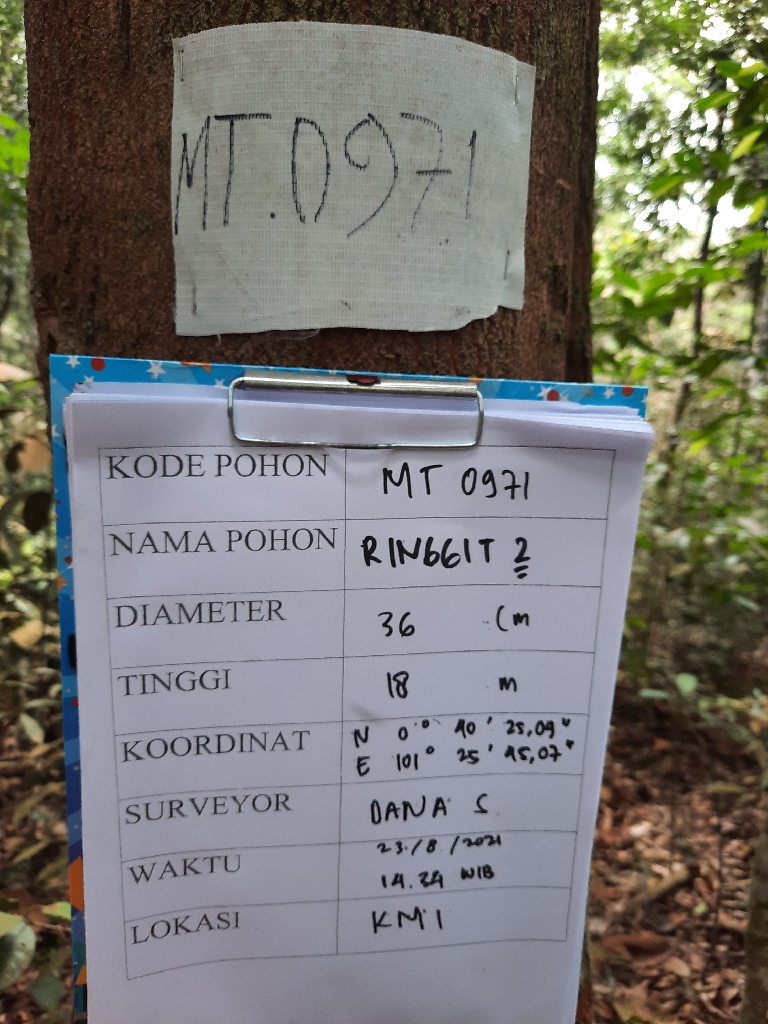 MT.0971
KODE POHON MT 0971
NAMA POHON RINGGIT 2
DIAMETER 36 Cm
TINGGI 18 m
KOORDINAT N 0° 40' 25,09"
E 101° 25' 45,07"
SURVEYOR DANA S
WAKTU 23/8/2021
14.24 WIB
LOKASI KM 1